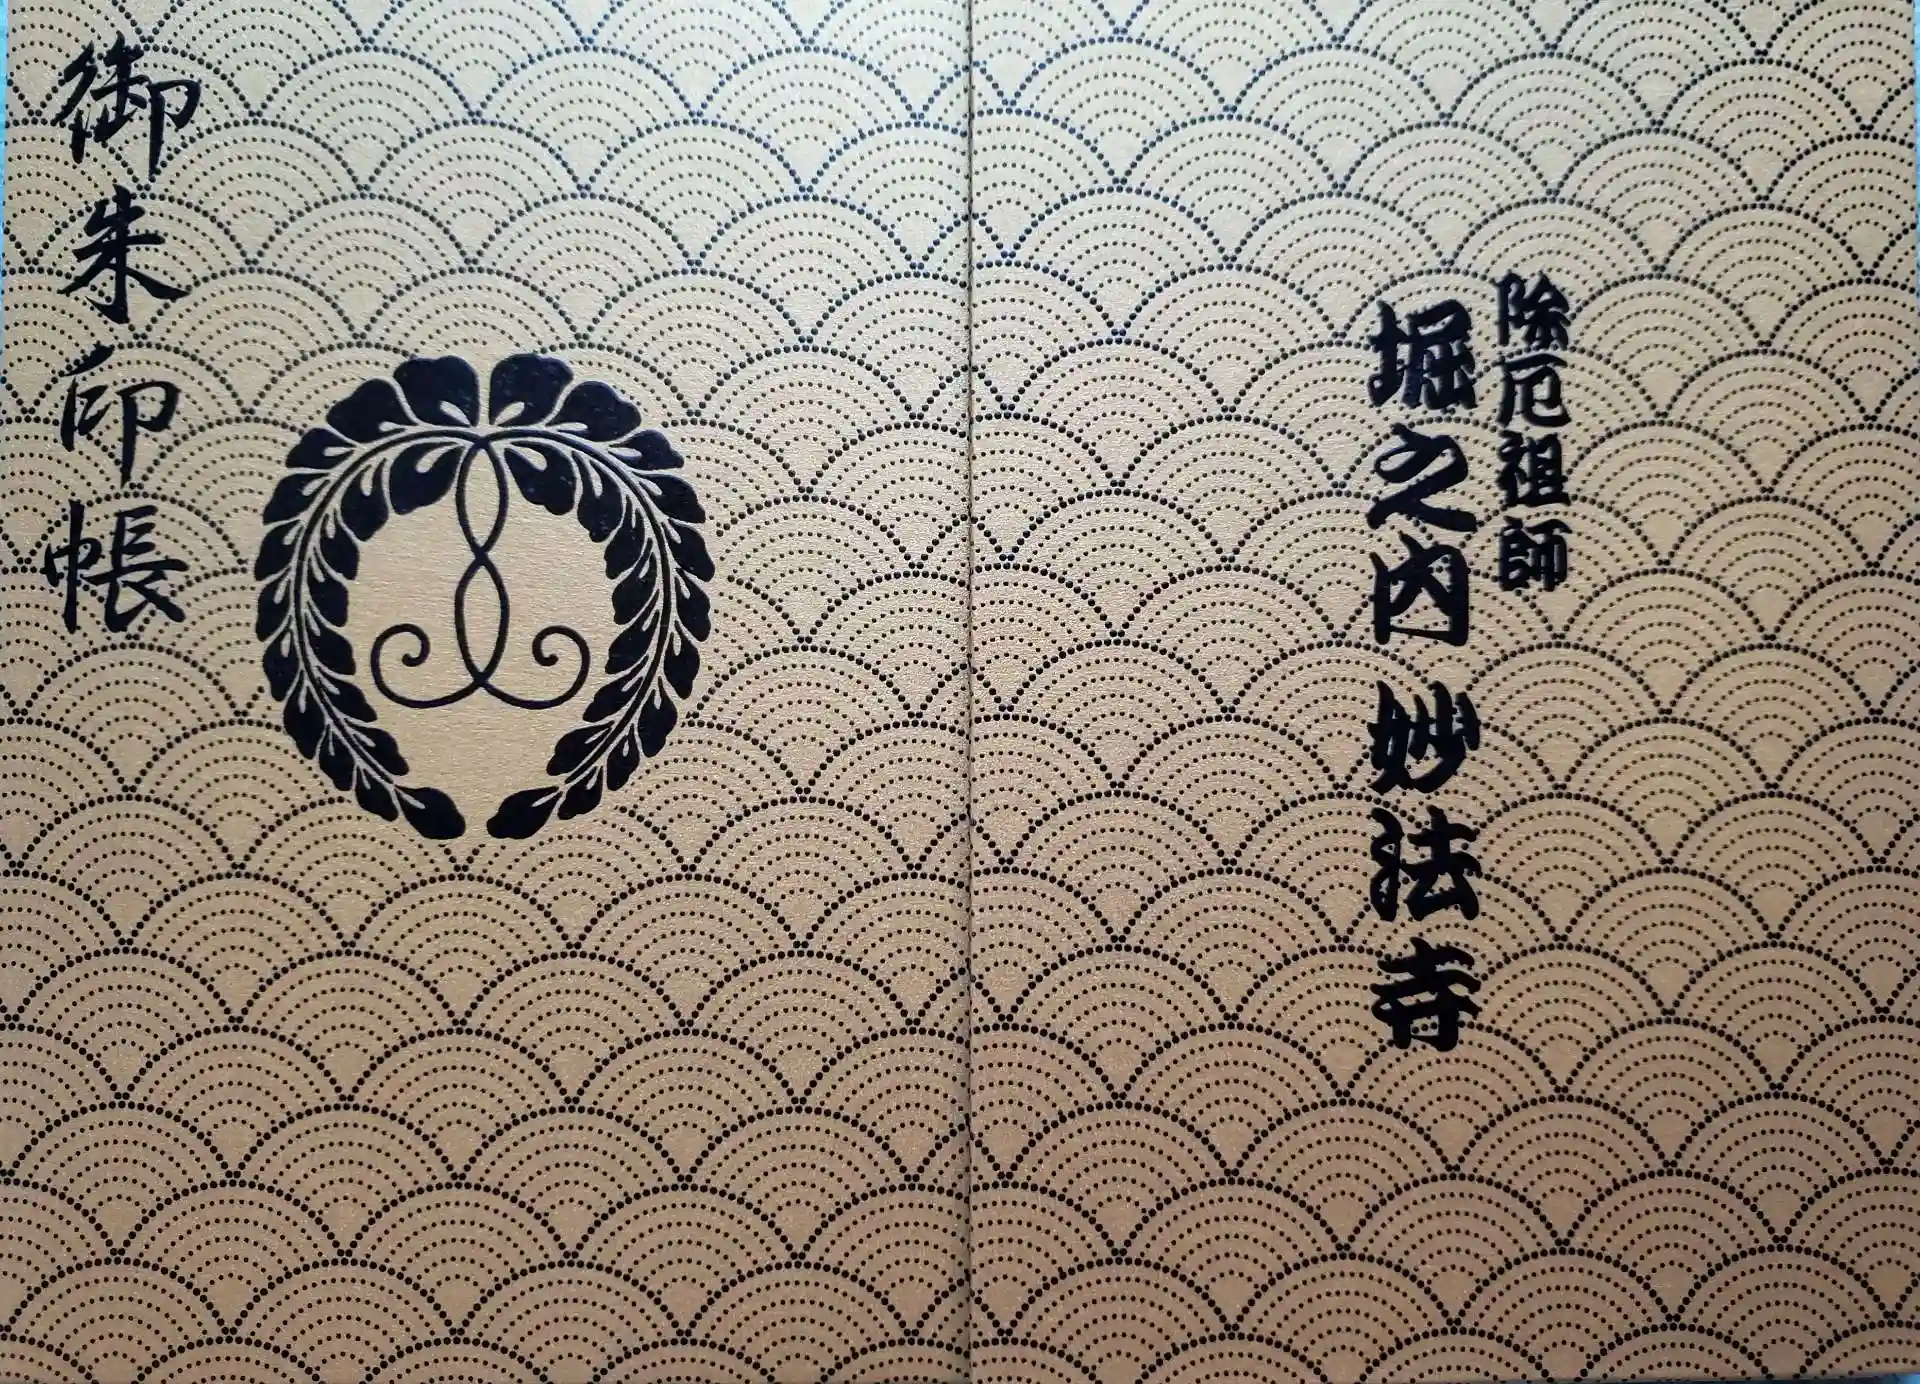 除厄祖師
堀之内 妙法寺
御朱印帳